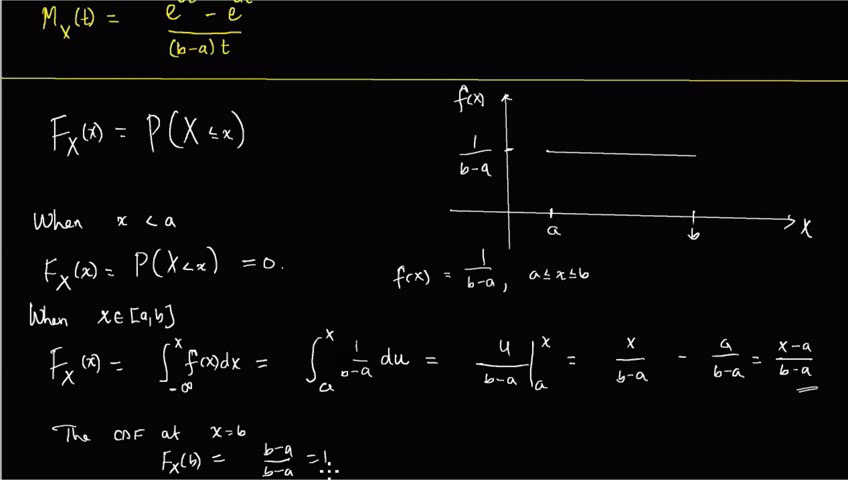 M_X(t) = (e^{bt} - e^{at}) / (b-a)t
F_X(x) = P(X ≤ x)
f(x)
1/(b-a)
a b x
When x < a
F_X(x) = P(X<x) = 0.
f(x) = 1/(b-a), a ≤ x ≤ b
When x ∈ [a,b]
F_X(x) = ∫_{-∞}^{x} f(x)dx = ∫_{a}^{x} 1/(b-a) du = u/(b-a) |_{a}^{x} = x/(b-a) - a/(b-a) = (x-a)/(b-a)
The CDF at x=b
F_X(b) = (b-a)/(b-a) = 1